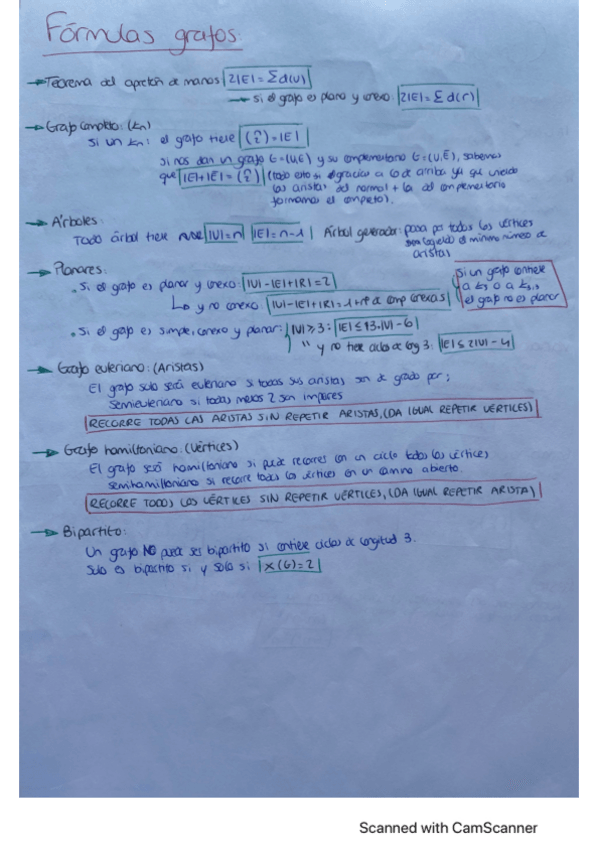 Fórmulas grafos:
→ Teorema del apretón de manos 2|E| = Σd(v)
→ si el grafo es plano y conexo: 2|E| = Σd(r)
→ Grafo completo: (Kn)
Si un Kn: el grafo tiene (n 2) = |E|
si nos dan un grafo G=(V,E) y su complementario G=(V,Ē), sabemos
que |E|+|Ē| = (n 2) (todo esto si el gracias a lo de arriba ya que uniendo
las aristas del normal + las del complementario
formamos el completo).
→ Árboles:
Todo árbol tiene |V|=n |E|=n-1 Árbol generador: pasa por todos los vértices
con el mínimo número de
aristas
→ Planares:
• Si el grafo es planar y conexo: |V|-|E|+|R|=2
↳ y no conexo: |V|-|E|+|R|=1+nº de comp conexas
si un grafo contiene
a K5 o a K3,3
el grafo no es planar
• Si el grafo es simple, conexo y planar: |V|≥3: |E|≤|3·|V|-6|
" y no tiene ciclos de long 3: |E|≤2|V|-4
→ Grafo euleriano: (Aristas)
El grafo solo será euleriano si todas sus aristas son de grado par;
Semieuleriano si todas menos 2 son impares
RECORRE TODAS LAS ARISTAS SIN REPETIR ARISTAS, (DA IGUAL REPETIR VÉRTICES)
→ Grafo hamiltoniano: (Vértices)
El grafo será hamiltoniano si puede recorrer con un ciclo todos los vértices
semihamiltoniano si recorre todos los vértices en un camino abierto.
RECORRE TODOS LOS VÉRTICES SIN REPETIR VÉRTICES, (DA IGUAL REPETIR ARISTA)
→ Bipartito:
Un grafo NO puede ser bipartito si contiene ciclos de longitud 3.
Solo es bipartito si y solo si X(G)=2
Scanned with CamScanner